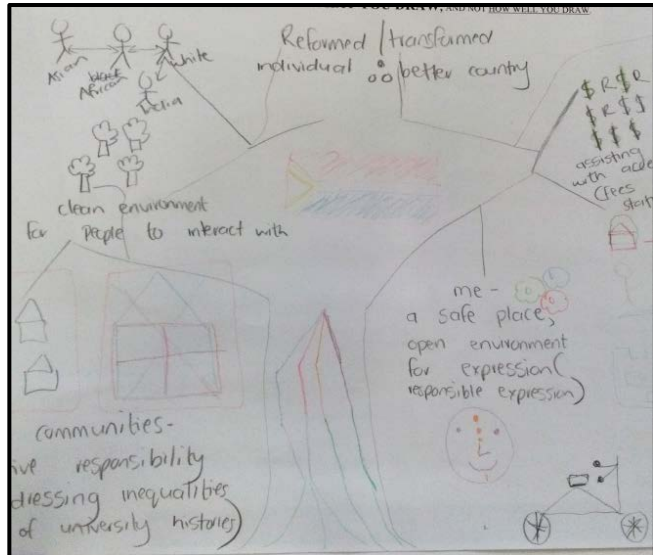 YOU DRAW, AND NOT HOW WELL YOU DRAW.
Asian
black
African
white
India
Reformed / transformed
individual ∴ better country
$ R $ R
$ R $ $
$ $ $
assisting
with
(fees
start
clean environment
for people to interact with
me -
a safe place,
open environment
for expression(
responsible expression)
communities -
ive responsibility
dressing inequalities
of university histories)